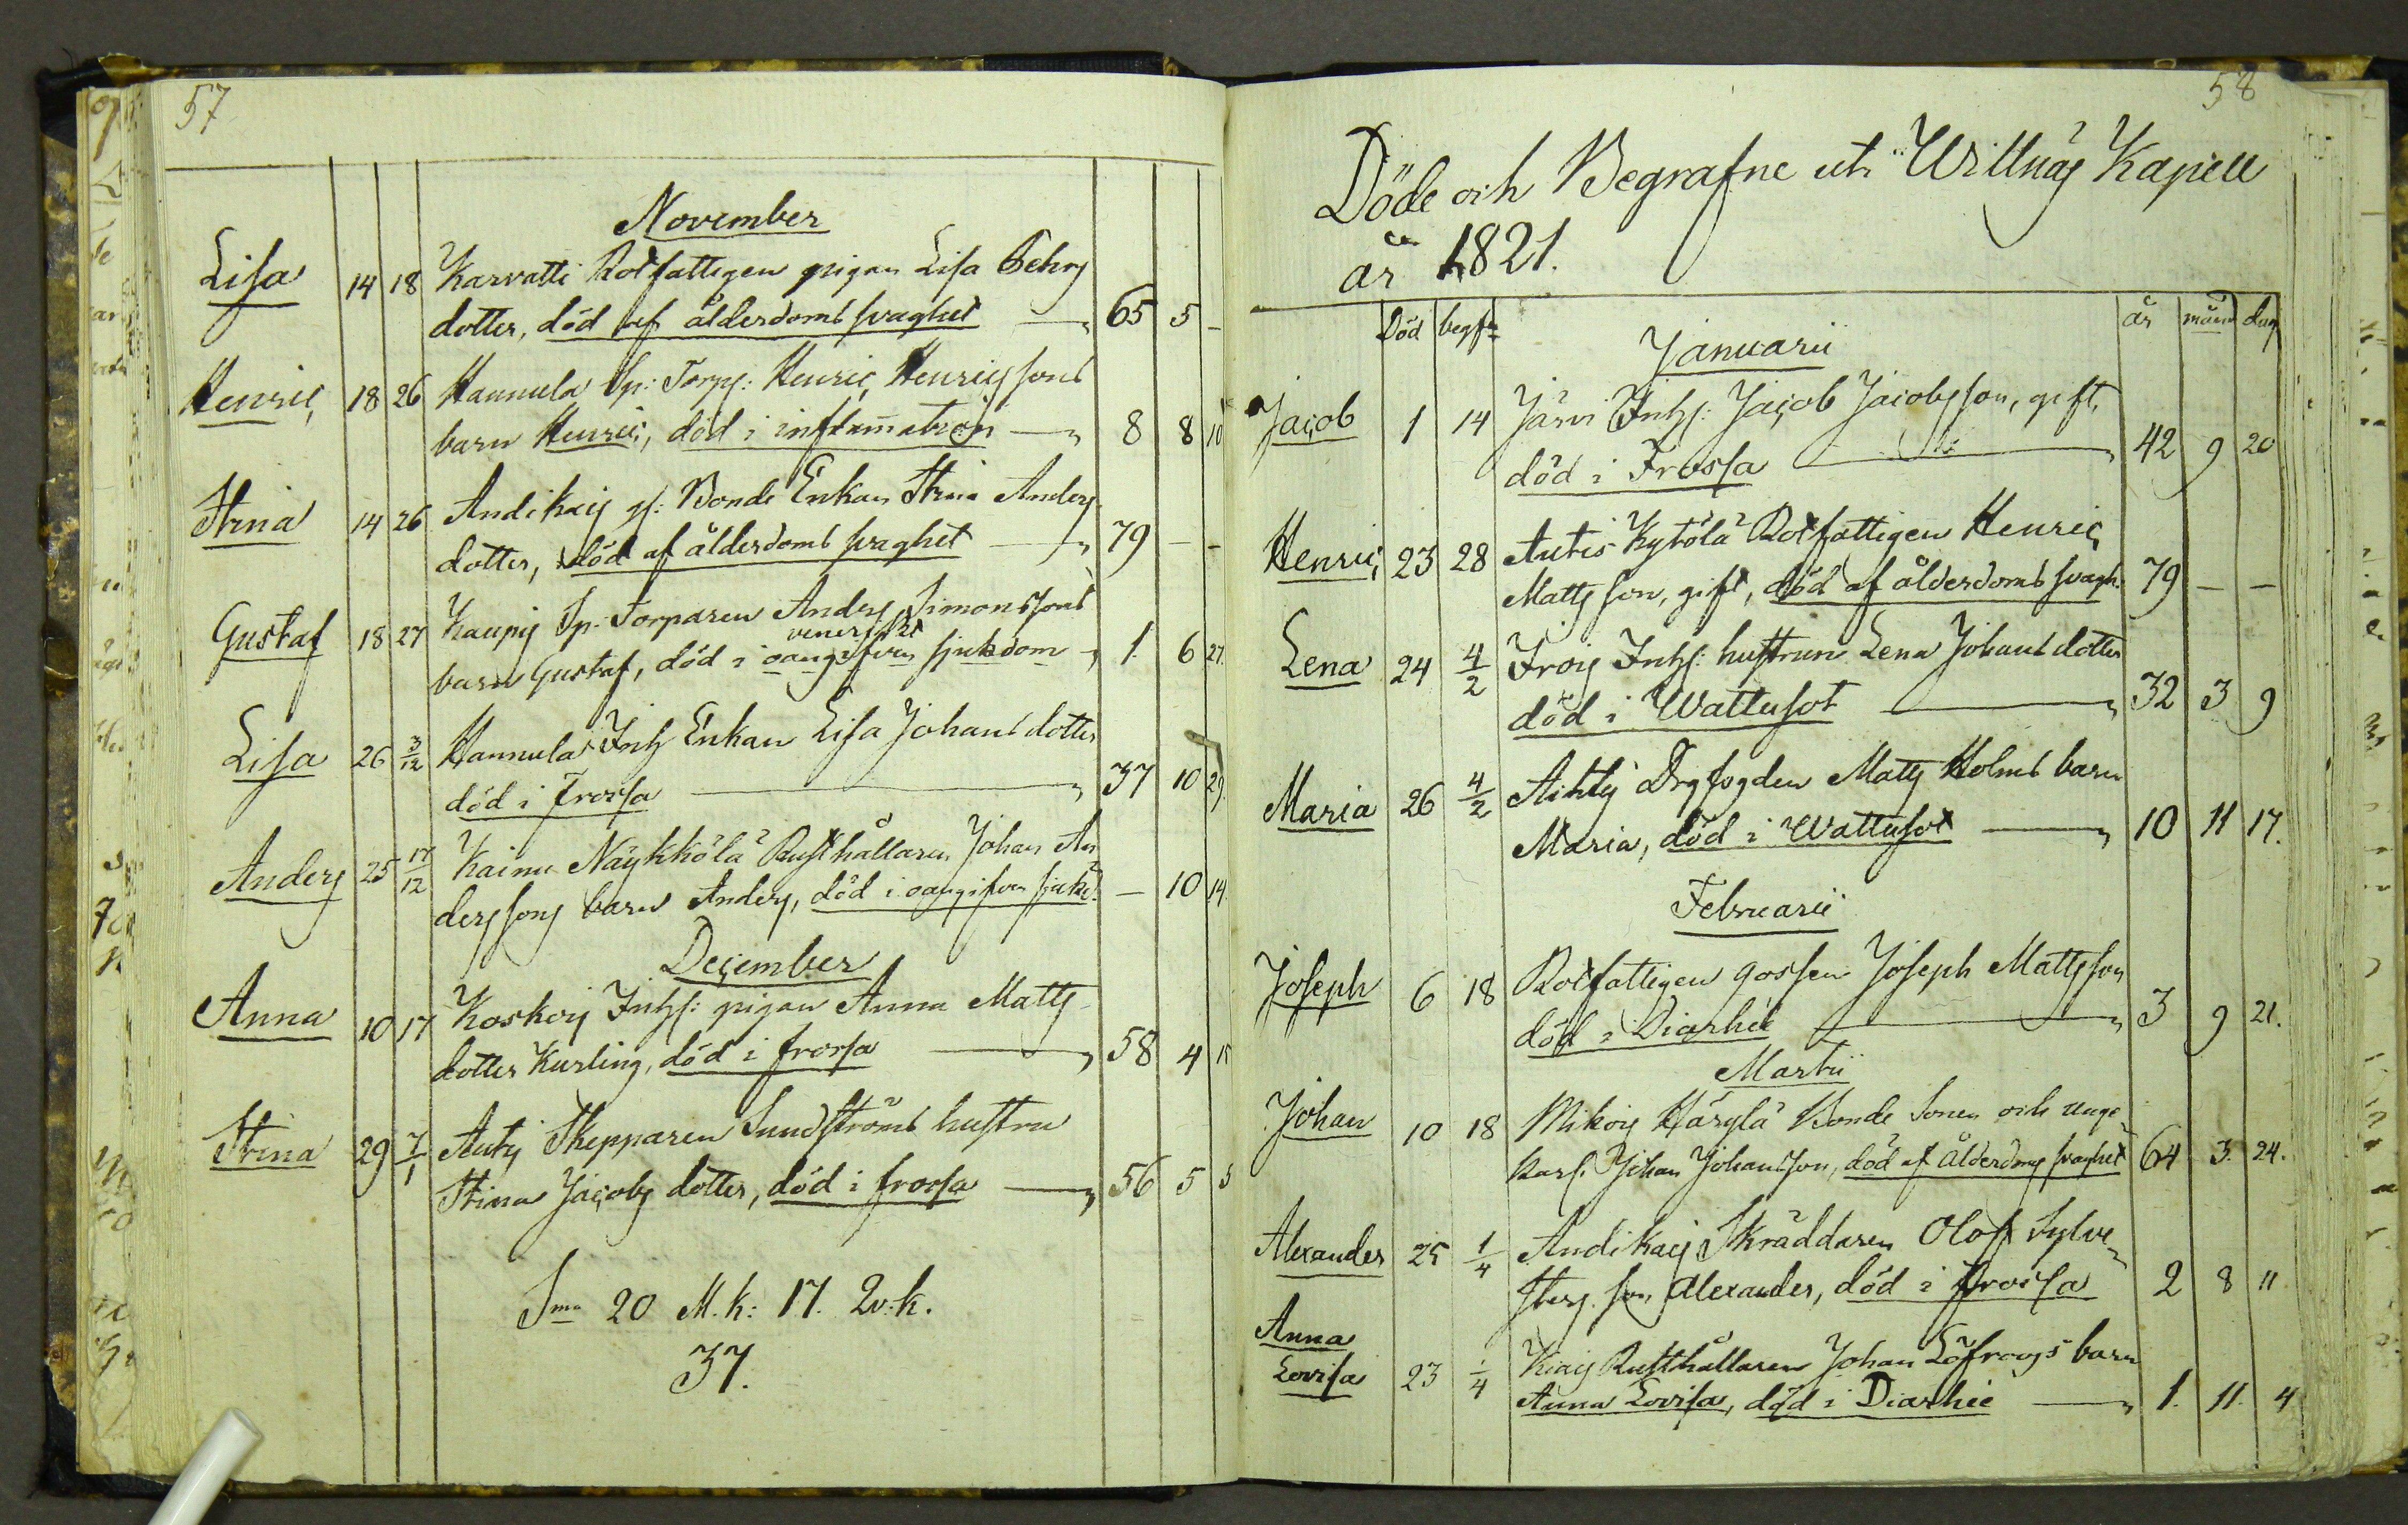 57
November
Lisa 14 18 Karvatti Rotfattigen pigan Lisa Behrs
dotter, död af ålderdoms svaghet 65 5 -
Henric 18 26 Hannula Sp: Torp: Henric Henricssons
barn Henric, död i inflam̄ation 8 8 10
Stina 14 26 Andikais gl: Bonde Enkan Stina Anders
dotter, död af ålderdoms svaghet 79 - -
Gustaf 18 27 Kaupis Sp. Torparen Anders Simonssons
venerisk
barn Gustaf, död i oangifven sjukdom 1. 6 27.
Lisa 26 3/12 Hannula Inh Enkan Lisa Johansdotter
död i Frossa 37 10 29.
Anders 25 17/12 Kainu Näykkölä Rusthållaren Johan An
derssons barn Anders, död i oangifven sjukd. - 10 14
December
Anna 10 17 Koskois Inhs: pigan Anna Matts
dotter Kurling, död i frossa 58 4 15
Stina 29 7/1 Antis Skepparen Sundströms hustru
Stina Jacobs dotter, död i frossa 56 5 5
Sma 20 M.k: 17. Qv:k.
37.
58
Döde och Begrafne uti Willnäs Kapell
år 1821.
Död begfn år mån dag
Januarii
Jacob 1 14 Järvi Inhs: Jacob Jacobsson, gift,
död i Frossa 42 9 20
Henric 23 28 Antis Kytölä Rotfattigen Henric
Mattsson, gift, död af ålderdoms svagh. 79 - -
Lena 24 4/2 Frois Inhs: hustrun Lena Johansdotter
död i Wattusot 32 3 9
Maria 26 4/2 Drgfogden Matts Holms barn
Maria, död i Wattusot 10 11 17.
Februarii
Joseph 6 18 Rotfattigen gossen Joseph Mattsson
död i Diarhée 3 9 21.
Martii
Johan 10 18 Mikois Härylä Bonde Sonen och unge
Karl. Johan Johansson, död af Ålderdoms svaghet 64 3. 24.
Alexander 25 1/4 Andikais Skräddaren Olof Sylve
sters son Alexander, död i frossa 2 8 11
Anna
Lovisa 23 1/4 Kiais Rusthållaren Johan Löfroos barn
Anna Lovisa, död i Diarhée 1. 11. 4